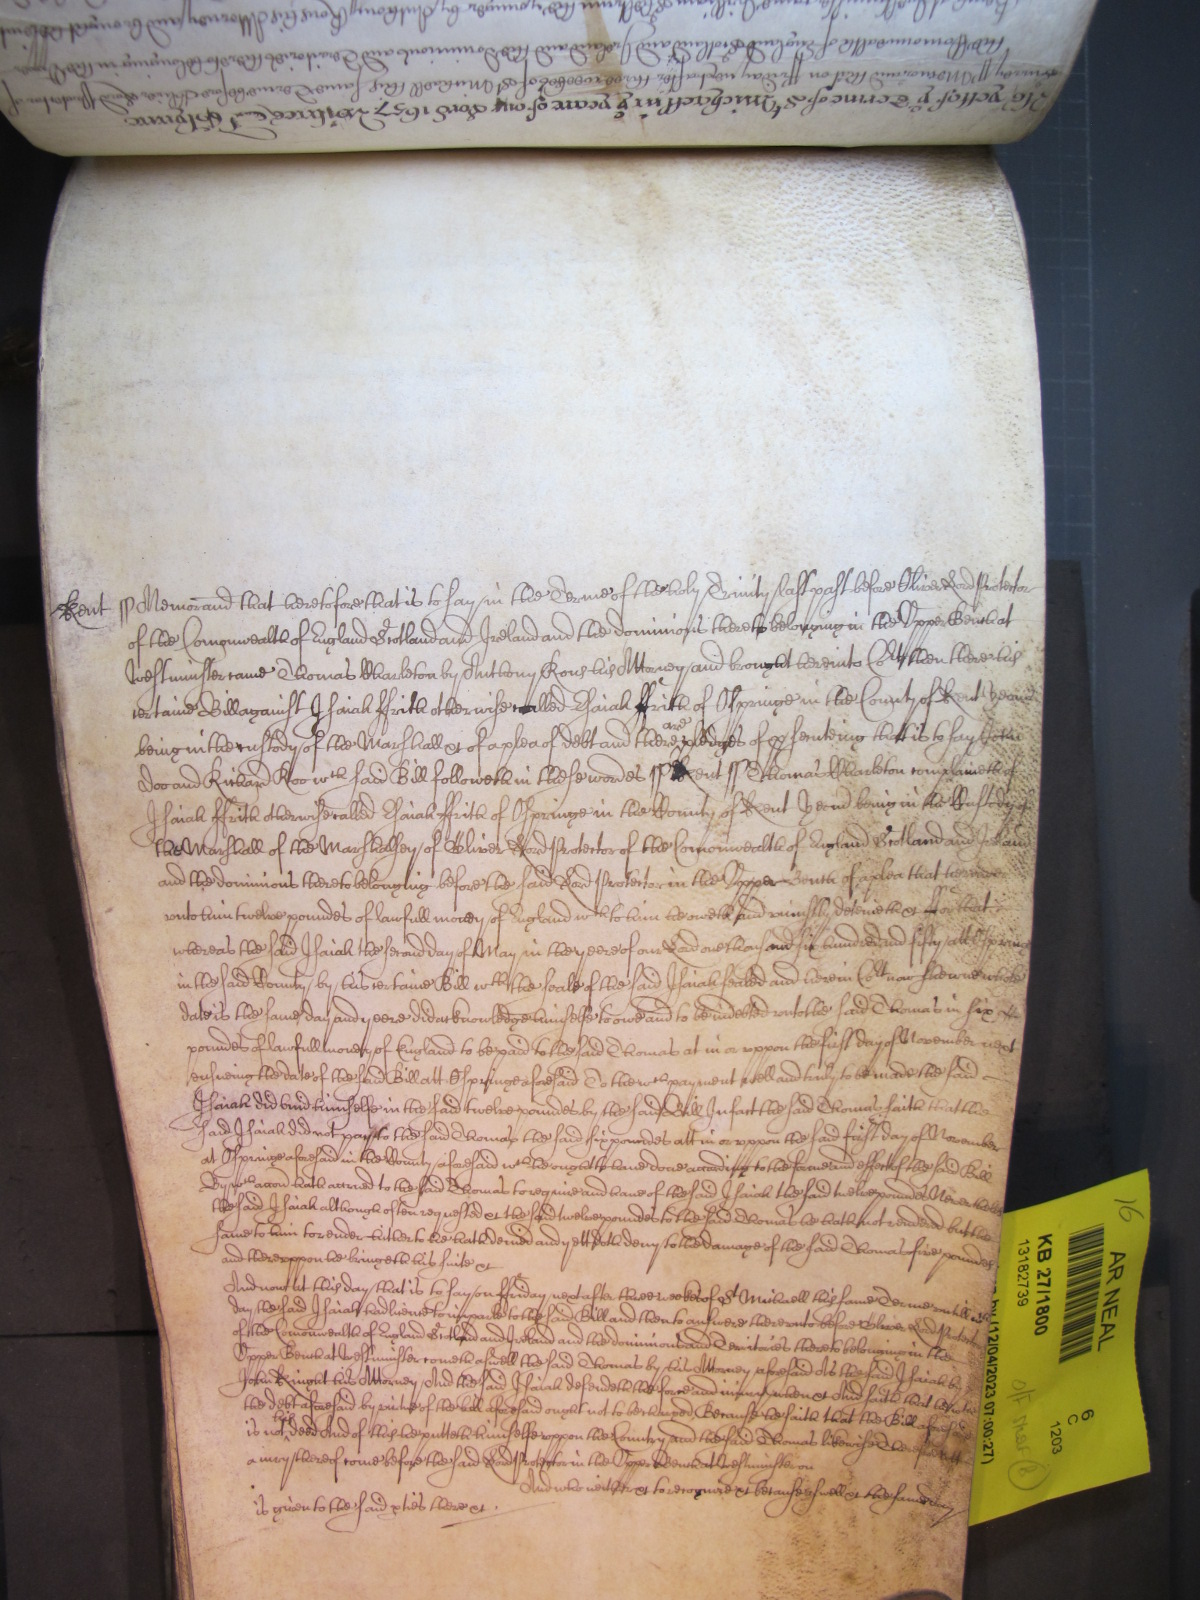 Yett of ye Terme of St Michaell in ye yeare of our Lord 1657 Witnes
Kent ss Memorand that heretofore that is to say in the Terme of the holy Trinity last past before Oliver Lord Protector
of the Comonwealth of England Scotland and Ireland and the dominions thereto belonging in the Upper Bench at
Westminster came Thomas Wharleton by Anthony Rous his Attorney and brought here into Cort then there his
certaine Bill against Isaiah ffrith otherwise called Isaiah ffrith of Ospringe in the County of Kent Yeom
being in the custody of the Marshall &t of a plea of debt and there are pledges of prsecuteing that is to say John
Doo and Richard Roo wch said Bill followeth in these wordes ss Kent ss Thomas Wharleton complaineth of
Isaiah ffrith otherwise called Isaiah ffrith of Ospringe in the County of Kent Yeom being in the Custody of
the Marshall of the Marshalsey of Oliver Lord Protector of the Comonwealth of England Scotland and Ireland
and the dominions thereto belonging before the said Lord Protector in the Upper Bench of a plea that he render
unto him twelve poundes of lawfull money of England wch to him he oweth and uniustly deteineth &t ffor that
whereas the said Isaiah the second day of May in the yeere of our Lord one thousand six hundred and fifty att Ospringe
in the said County by his certaine Bill wth the seale of the said Isaiah sealed and here in Cort now shewne whose
date is the same day and yeere did acknowledge himselfe to owe and to be indebted unto the said Thomas in six
poundes of lawfull money of England to be paid to the said Thomas at in or uppon the first day of November next
ensueing the date of the said Bill att Ospringe aforesaid To the wch payment well and truly to be made the said
Isaiah did bind himselfe in the said twelve poundes by the said Bill In fact the said Thomas saith that the
said Isaiah did not pay to the said Thomas the said six poundes att in or uppon the said first day of November
at Ospringe aforesaid in the County aforesaid wch he ought to have done according to the forme and effect of the said Bill
By wch accon hath accrued to the said Thomas to require and have of the said Isaiah the said twelve poundes Neverthelesse
the said Isaiah although often requested &t the said twelve poundes to the said Thomas he hath not rendred but the
same to him to render hitherto he hath denied and yett doth deny to the damage of the said Thomas five poundes
and thereuppon he bringeth his suite &t
And now at this day that is to say on ffryday next after three weekes of St Michaell this same Terme untill wch
day the said Isaiah had licence to imparle to the said Bill and then to answere thereunto before Oliver Lord Protector
of the Comonwealth of England Scotland and Ireland and the dominions and Territories thereto belonging in the
Upper Bench at Westminster cometh aswell the said Thomas by his Attorney aforesaid As the said Isaiah by
John Knight his Attorney And the said Isaiah defendeth the force and iniury when &t And saith that he
the debt aforesaid by vertue of the bill aforesaid ought not to be charged Because he saith that the Bill aforesaid
is not his deed And of this he putteth himselfe uppon the Country and the said Thomas likewise Therefore lett
a iury thereof come before the said Lord Protector in the Upper Bench at Westminster on
And who neither &t to recognize &t because aswell &t the same day
is given to the said pties there &t
16
AR NEAL
KB 27/1800
13182739
(12/04/2023 07:00:27)
6
C
1203